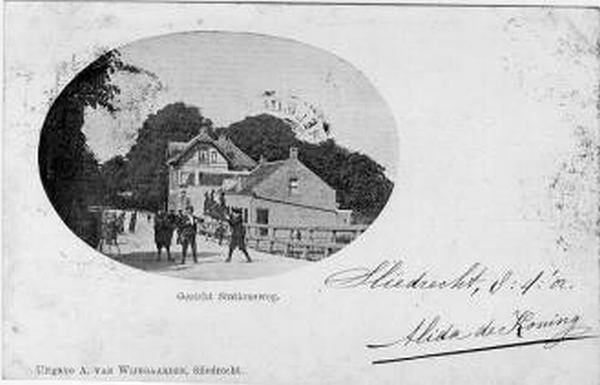 Gezicht Stationsweg.
Sliedrecht, 8.4.'02.
Alida de Koning
Uitgave A. VAN WIJNGAARDEN, Sliedrecht.